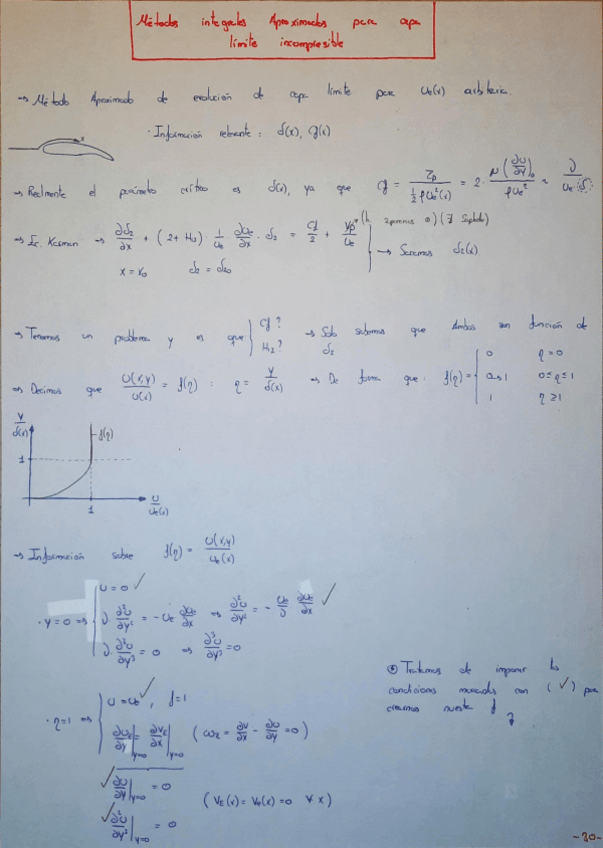 Métodos integrales Aproximados para capa
límite incompresible
→ Método Aproximado de evolución de capa límite para Ue(x) arbitraria.
· Información relevante: δ(x), Cf(x)
→ Realmente el parámetro crítico es δ(x), ya que Cf = τp / (½ρUe²(x)) = 2· μ(∂U/∂y)₀ / ρUe² ≈ ν / (Ue·δ)
→ Ec. Karman → ∂δ₂/∂x + (2+H₁₂)· 1/Ue ∂Ue/∂x · δ₂ = Cf/2 + Vp/Ue
→ Sacamos δ₂(x)
x = x₀ δ₂ = δ₂₀
→ Tenemos un problema y es que { Cf? H₁₂? → Solo sabemos que Ambos son función de δ₂
⇒ Decimos que U(x,y)/U(x) = f(η) : η = y/δ(x) ⇒ De forma que: f(η) = { 0 η=0
0 a 1 0≤η≤1
1 η≥1
y/δ(x)
f(η)
1
1
U/Ue(x)
→ Información sobre f(η) = U(x,y)/Ue(x)
· y=0 ⇒ { U=0 ✓
ν ∂²U/∂y² = -Ue ∂Ue/∂x ⇒ ∂²U/∂y² = - Ue/ν ∂Ue/∂x ✓
ν ∂³U/∂y³ = 0 ⇒ ∂³U/∂y³ = 0
· η=1 ⇒ { U=Ue ✓, f=1
∂UE/∂y|y=0 = ∂VE/∂x|y=0 (ωz = ∂V/∂x - ∂U/∂y = 0)
✓ ∂U/∂y|y=0 = 0
(VE(x) = Vp(x) = 0 ∀x)
✓ ∂²U/∂y²|y=0 = 0
Tratamos de imponer las
condiciones marcadas con (✓) para
crearnos nuestra f
-30-